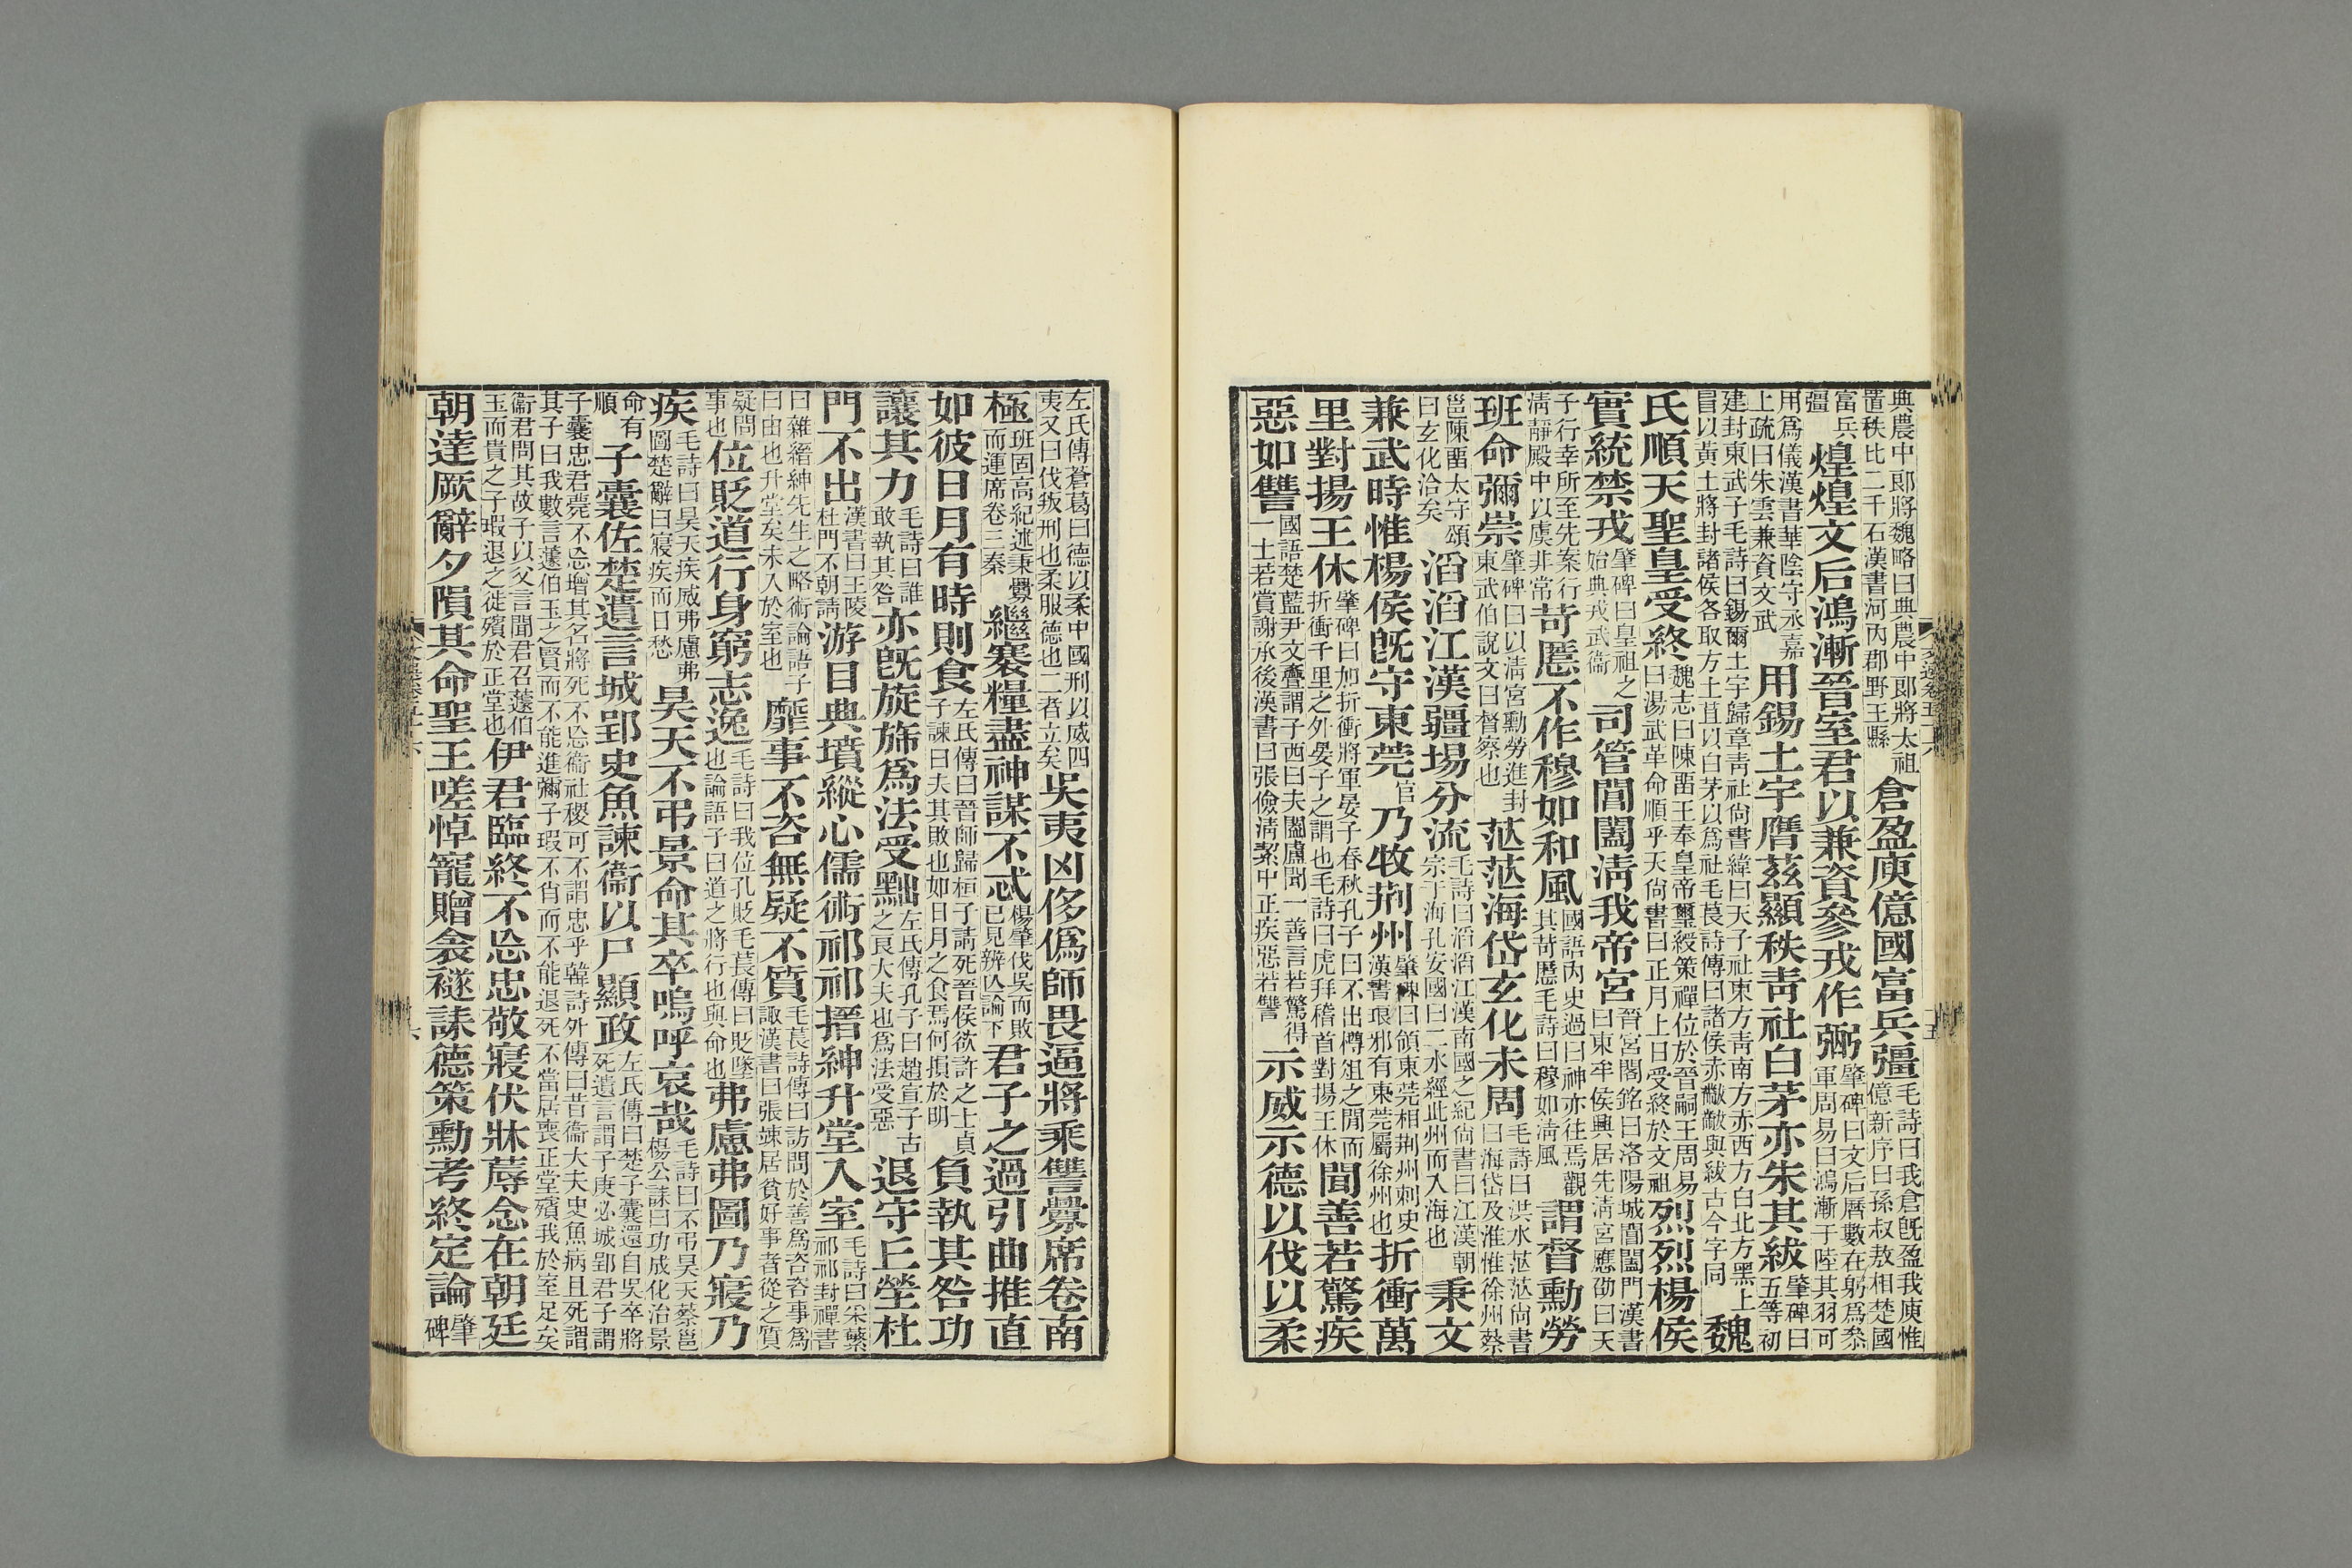 典農中郞將魏略曰典農中郞將太祖置秩比二千石漢書河內郡野王縣倉盈庾億國富兵彊毛詩曰我倉旣盈我庾惟億新序曰孫叔敖相楚國
富兵彊煌煌文后鴻漸晉室君以兼資參戎作弼肇碑曰文后曆數在躬爲參軍周易曰鴻漸于陸其羽可
用爲儀漢書華陰守丞嘉上疏曰朱雲兼資文武用錫土宇膺茲顯秩青社白茅亦朱其紱肇碑曰五等初
建封東武子毛詩曰錫爾土宇歸章青社尙書緯曰天子社東方青南方赤西方白北方黑上冒以黃土將封諸侯各取方土苴以白茅以爲社毛萇詩傳曰諸侯赤黻黻與紱古今字同魏
氏順天聖皇受終魏志曰陳留王奉皇帝璽綬策禪位於晉嗣王周易曰湯武革命順乎天尙書曰正月上日受終於文祖烈烈楊侯
實統禁戎肇碑曰皇祖之始典戎武衞司管閶闔淸我帝宮晉宮閣銘曰洛陽城閶闔門漢書曰東牟侯興居先淸宮應劭曰天
子行幸所至先案行淸靜殿中以虞非常苛慝不作穆如和風國語內史過曰神亦往焉觀其苛慝毛詩曰穆如淸風謂督勳勞
班命彌崇肇碑曰以淸宮勳勞進封東武伯說文曰督察也茫茫海岱玄化未周毛詩曰洪水茫茫尙書曰海岱及淮惟徐州蔡
邕陳留太守頌曰玄化洽矣滔滔江漢疆埸分流毛詩曰滔滔江漢南國之紀尙書曰江漢朝宗于海孔安國曰二水經此州而入海也秉文
兼武時惟楊侯旣守東莞官乃牧荆州肇碑曰領東莞相荆州刺史漢書琅邪有東莞屬徐州也折衝萬
里對揚王休肇碑曰加折衝將軍晏子春秋孔子曰不出樽俎之閒而折衝千里之外晏子之謂也毛詩曰虎拜稽首對揚王休聞善若驚疾
惡如讐國語楚藍尹文亹謂子西曰夫闔廬聞一善言若驚得一士若賞謝承後漢書曰張儉淸絜中正疾惡若讐示威示德以伐以柔
左氏傳蒼葛曰德以柔中國刑以威四夷又曰伐叛刑也柔服德也二者立矣吳夷凶侈僞師畏逼將乘讐釁席卷南
極班固高紀述乘釁而運席卷三秦繼褰糧盡神謀不忒楊肇伐吳而敗已見辨亡論下君子之過引曲推直
如彼日月有時則食左氏傳曰晉師歸桓子請死晉侯欲許之士貞子諫曰夫其敗也如日月之食焉何損於明負執其咎功
讓其力毛詩曰誰敢執其咎亦旣旋斾爲法受黜左氏傳孔子曰趙宣子古之良大夫也爲法受惡退守丘塋杜
門不出漢書曰王陵杜門不朝請游目典墳縱心儒術祁祁搢紳升堂入室毛詩曰采蘩祁祁封禪書
曰雜縉紳先生之略術論語子曰由也升堂矣未入於室也靡事不咨無疑不質毛萇詩傳曰訪問於善爲咨咨事爲諏漢書曰張竦居貧好事者從之質
疑問事也位貶道行身窮志逸毛詩曰我位孔貶毛萇傳曰貶墜也論語子曰道之將行也與命也弗慮弗圖乃寢乃
疾毛詩曰昊天疾威弗慮弗圖楚辭曰寢疾而日愁昊天不弔景命其卒嗚呼哀哉毛詩曰不弔昊天蔡邕楊公誄曰功成化治景
命有順子囊佐楚遺言城郢史魚諫衞以尸顯政左氏傳曰楚子囊還自吳卒將死遺言謂子庚必城郢君子謂
子囊忠君薨不忘增其名將死不忘衞社稷可不謂忠乎韓詩外傳曰昔衞大夫史魚病且死謂其子曰我數言蘧伯玉之賢而不能進彌子瑕不肖而不能退死不當居喪正堂殯我於室足矣
衞君問其故子以父言聞君召蘧伯玉而貴之子瑕退之徙殯於正堂也伊君臨終不忘忠敬寢伏牀蓐念在朝廷
朝達厥辭夕隕其命聖王嗟悼寵贈衾襚誄德策勳考終定論肇碑